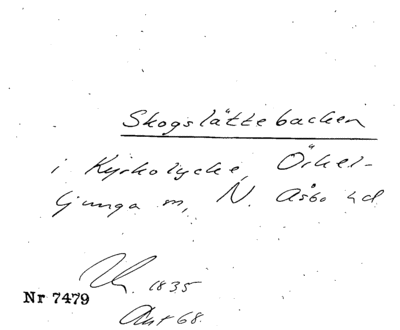 Skogslättebacken
i Kyrkolycke, Örkel-
ljunga sn, N. Åsbo hd
1835
Nr 7479
68.